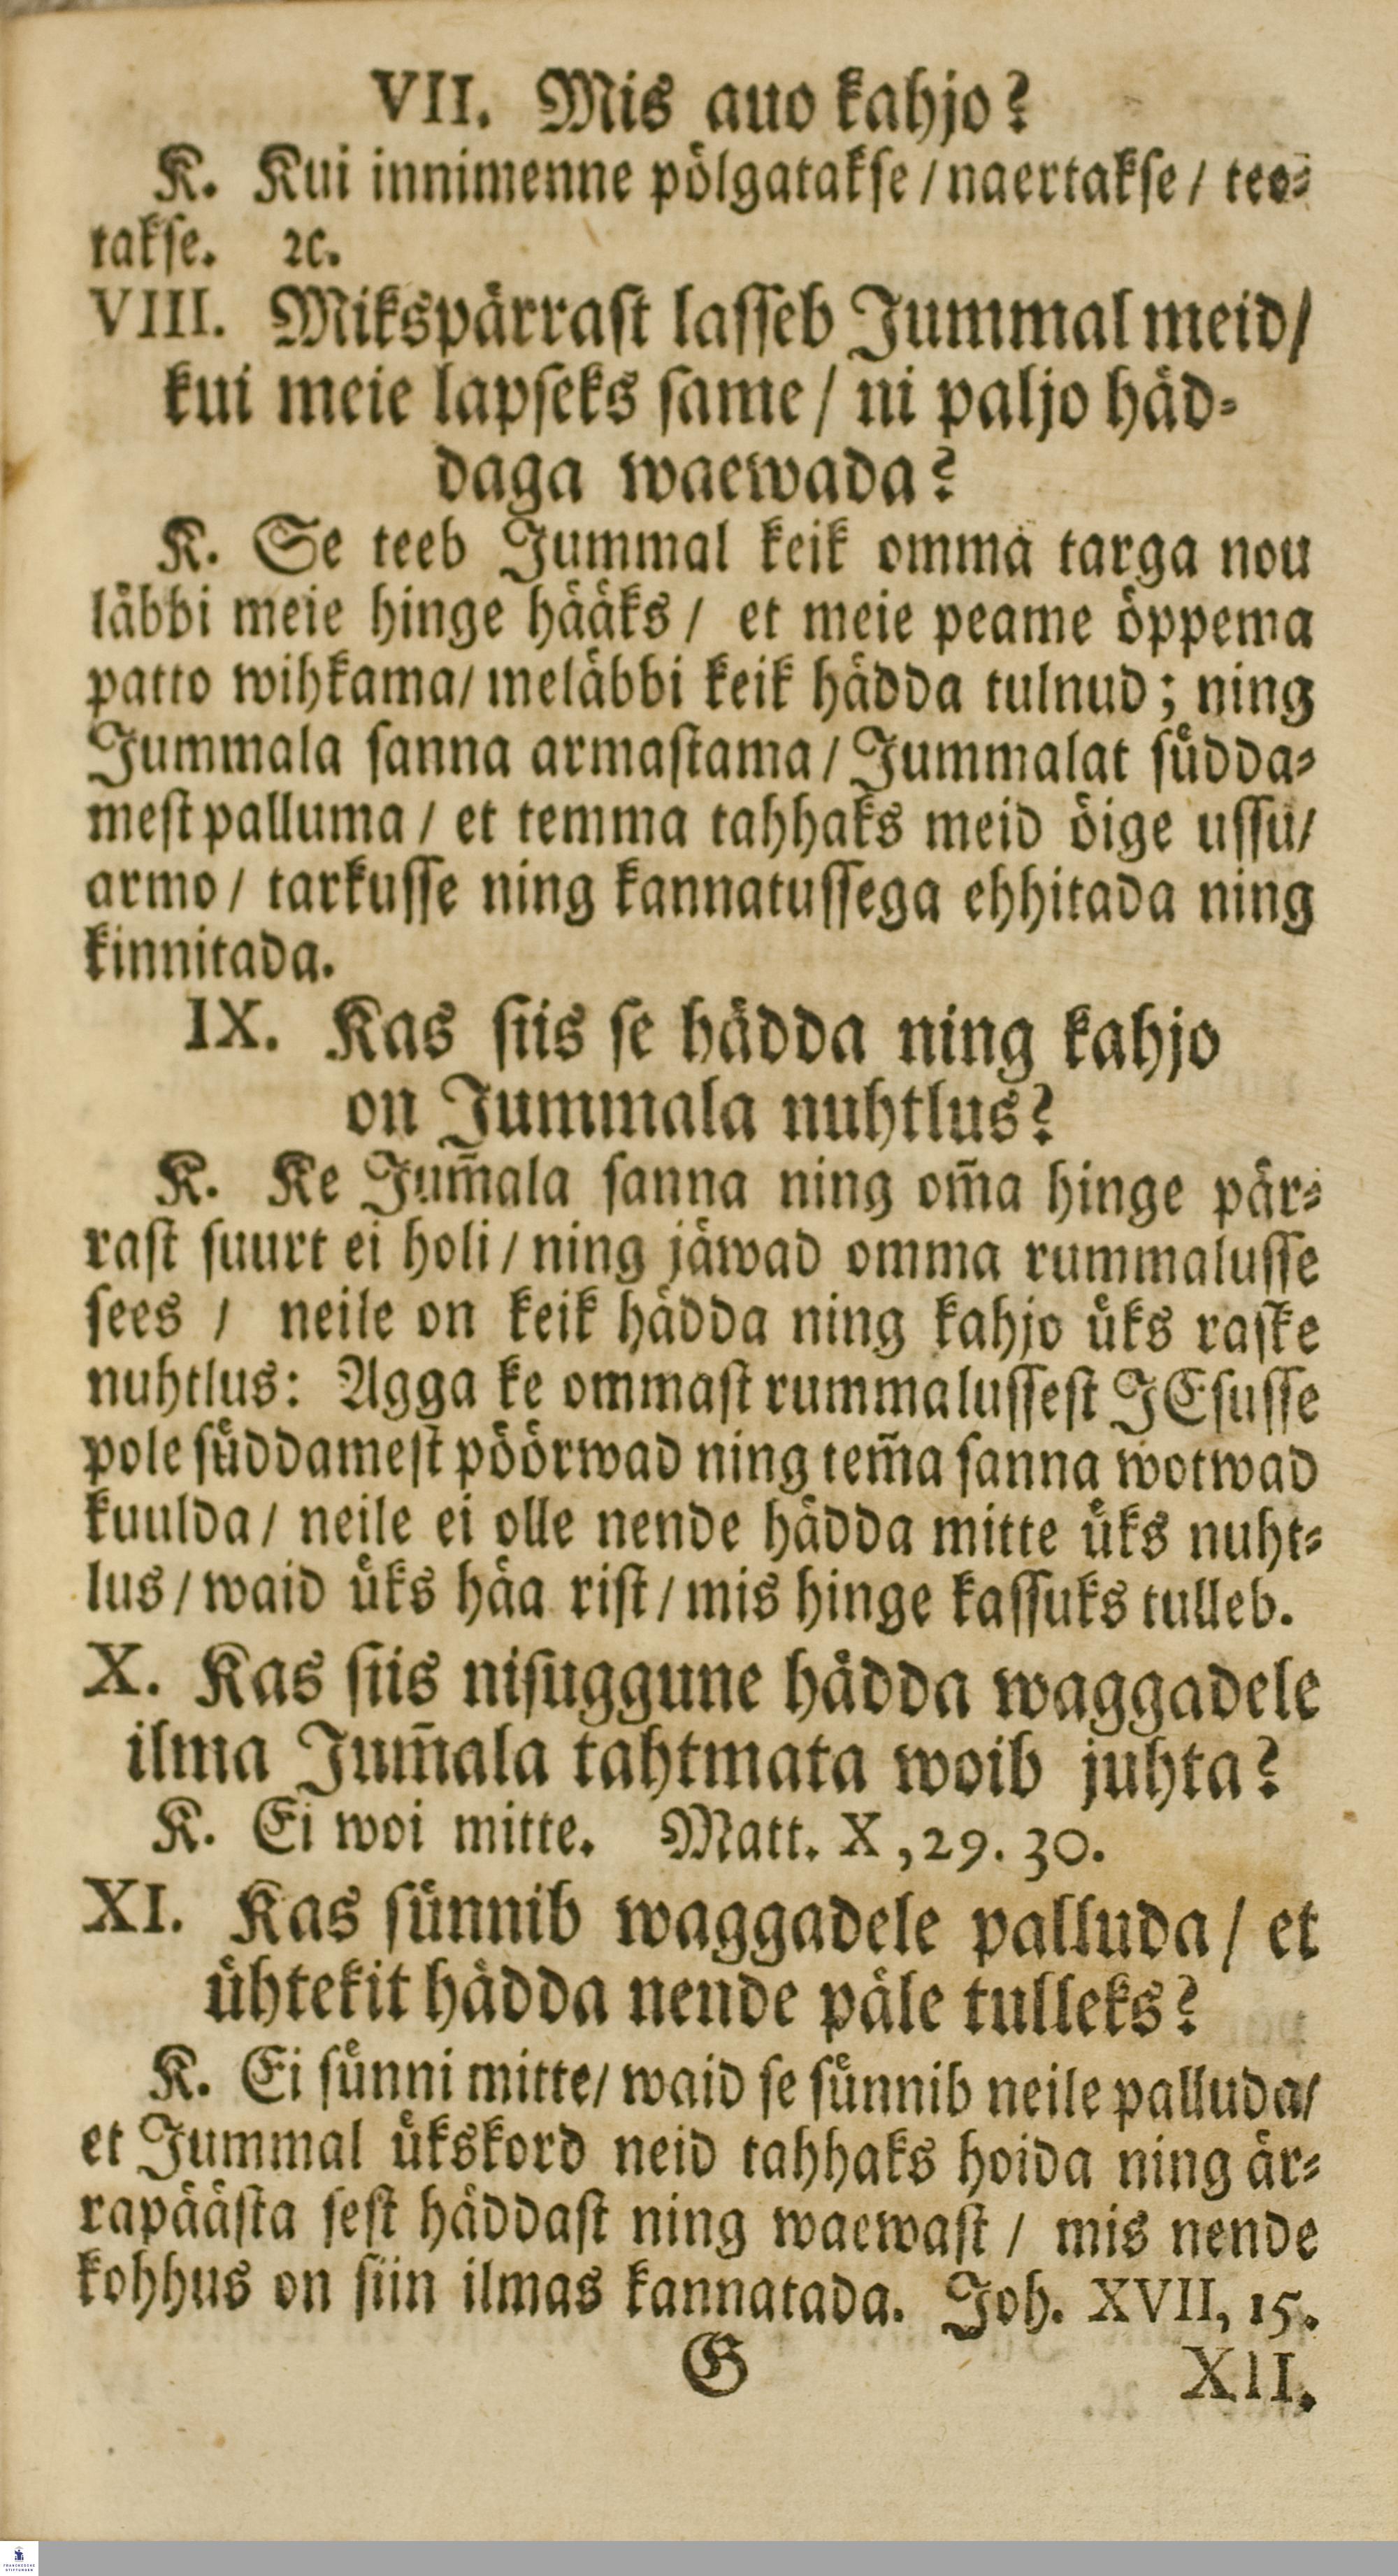 VII. Mis auo kahjo?
K. Kui innimenne pölgatakse / naertakse / teo-
takse. ꝛc.
VIII. Mikspärrast lasseb Jummal meid /
kui meie lapseks same / ni paljo häd-
daga waewada?
K. Se teeb Jummal keik omma targa nou
läbbi meie hinge hääks / et meie peame öppema
patto wihkama / meläbbi keik hädda tulnud; ning
Jummala sanna armastama / Jummalat südda-
mest palluma / et temma tahhaks meid öige ussu /
armo / tarkusse ning kannatussega ehhitada ning
kinnitada.
IX. Kas siis se hädda ning kahjo
on Jummala nuhtlus?
K. Ke Jum̃ala sanna ning om̃a hinge pär-
rast suurt ei holi / ning jäwad omma rummalusse
sees / neile on keik hädda ning kahjo üks raske
nuhtlus: Agga ke ommast rummalussest JEsusse
pole süddamest pöörwad ning tem̃a sanna wotwad
kuulda / neile ei olle nende hädda mitte üks nuht-
lus / waid üks häa rist / mis hinge kassuks tulleb.
X. Kas siis nisuggune hädda waggadele
ilma Jum̃ala tahtmata woib juhta?
K. Ei woi mitte. Matt. X, 29. 30.
XI. Kas sünnib waggadele palluda / et
ühtekit hädda nende päle tulleks?
K. Ei sünni mitte / waid se sünnib neile palluda /
et Jummal ükskord neid tahhaks hoida ning är-
rapäästa sest häddast ning waewast / mis nende
kohhus on siin ilmas kannatada. Joh. XVII, 15.
G XII.
FRANCKESCHE
STIFTUNGEN